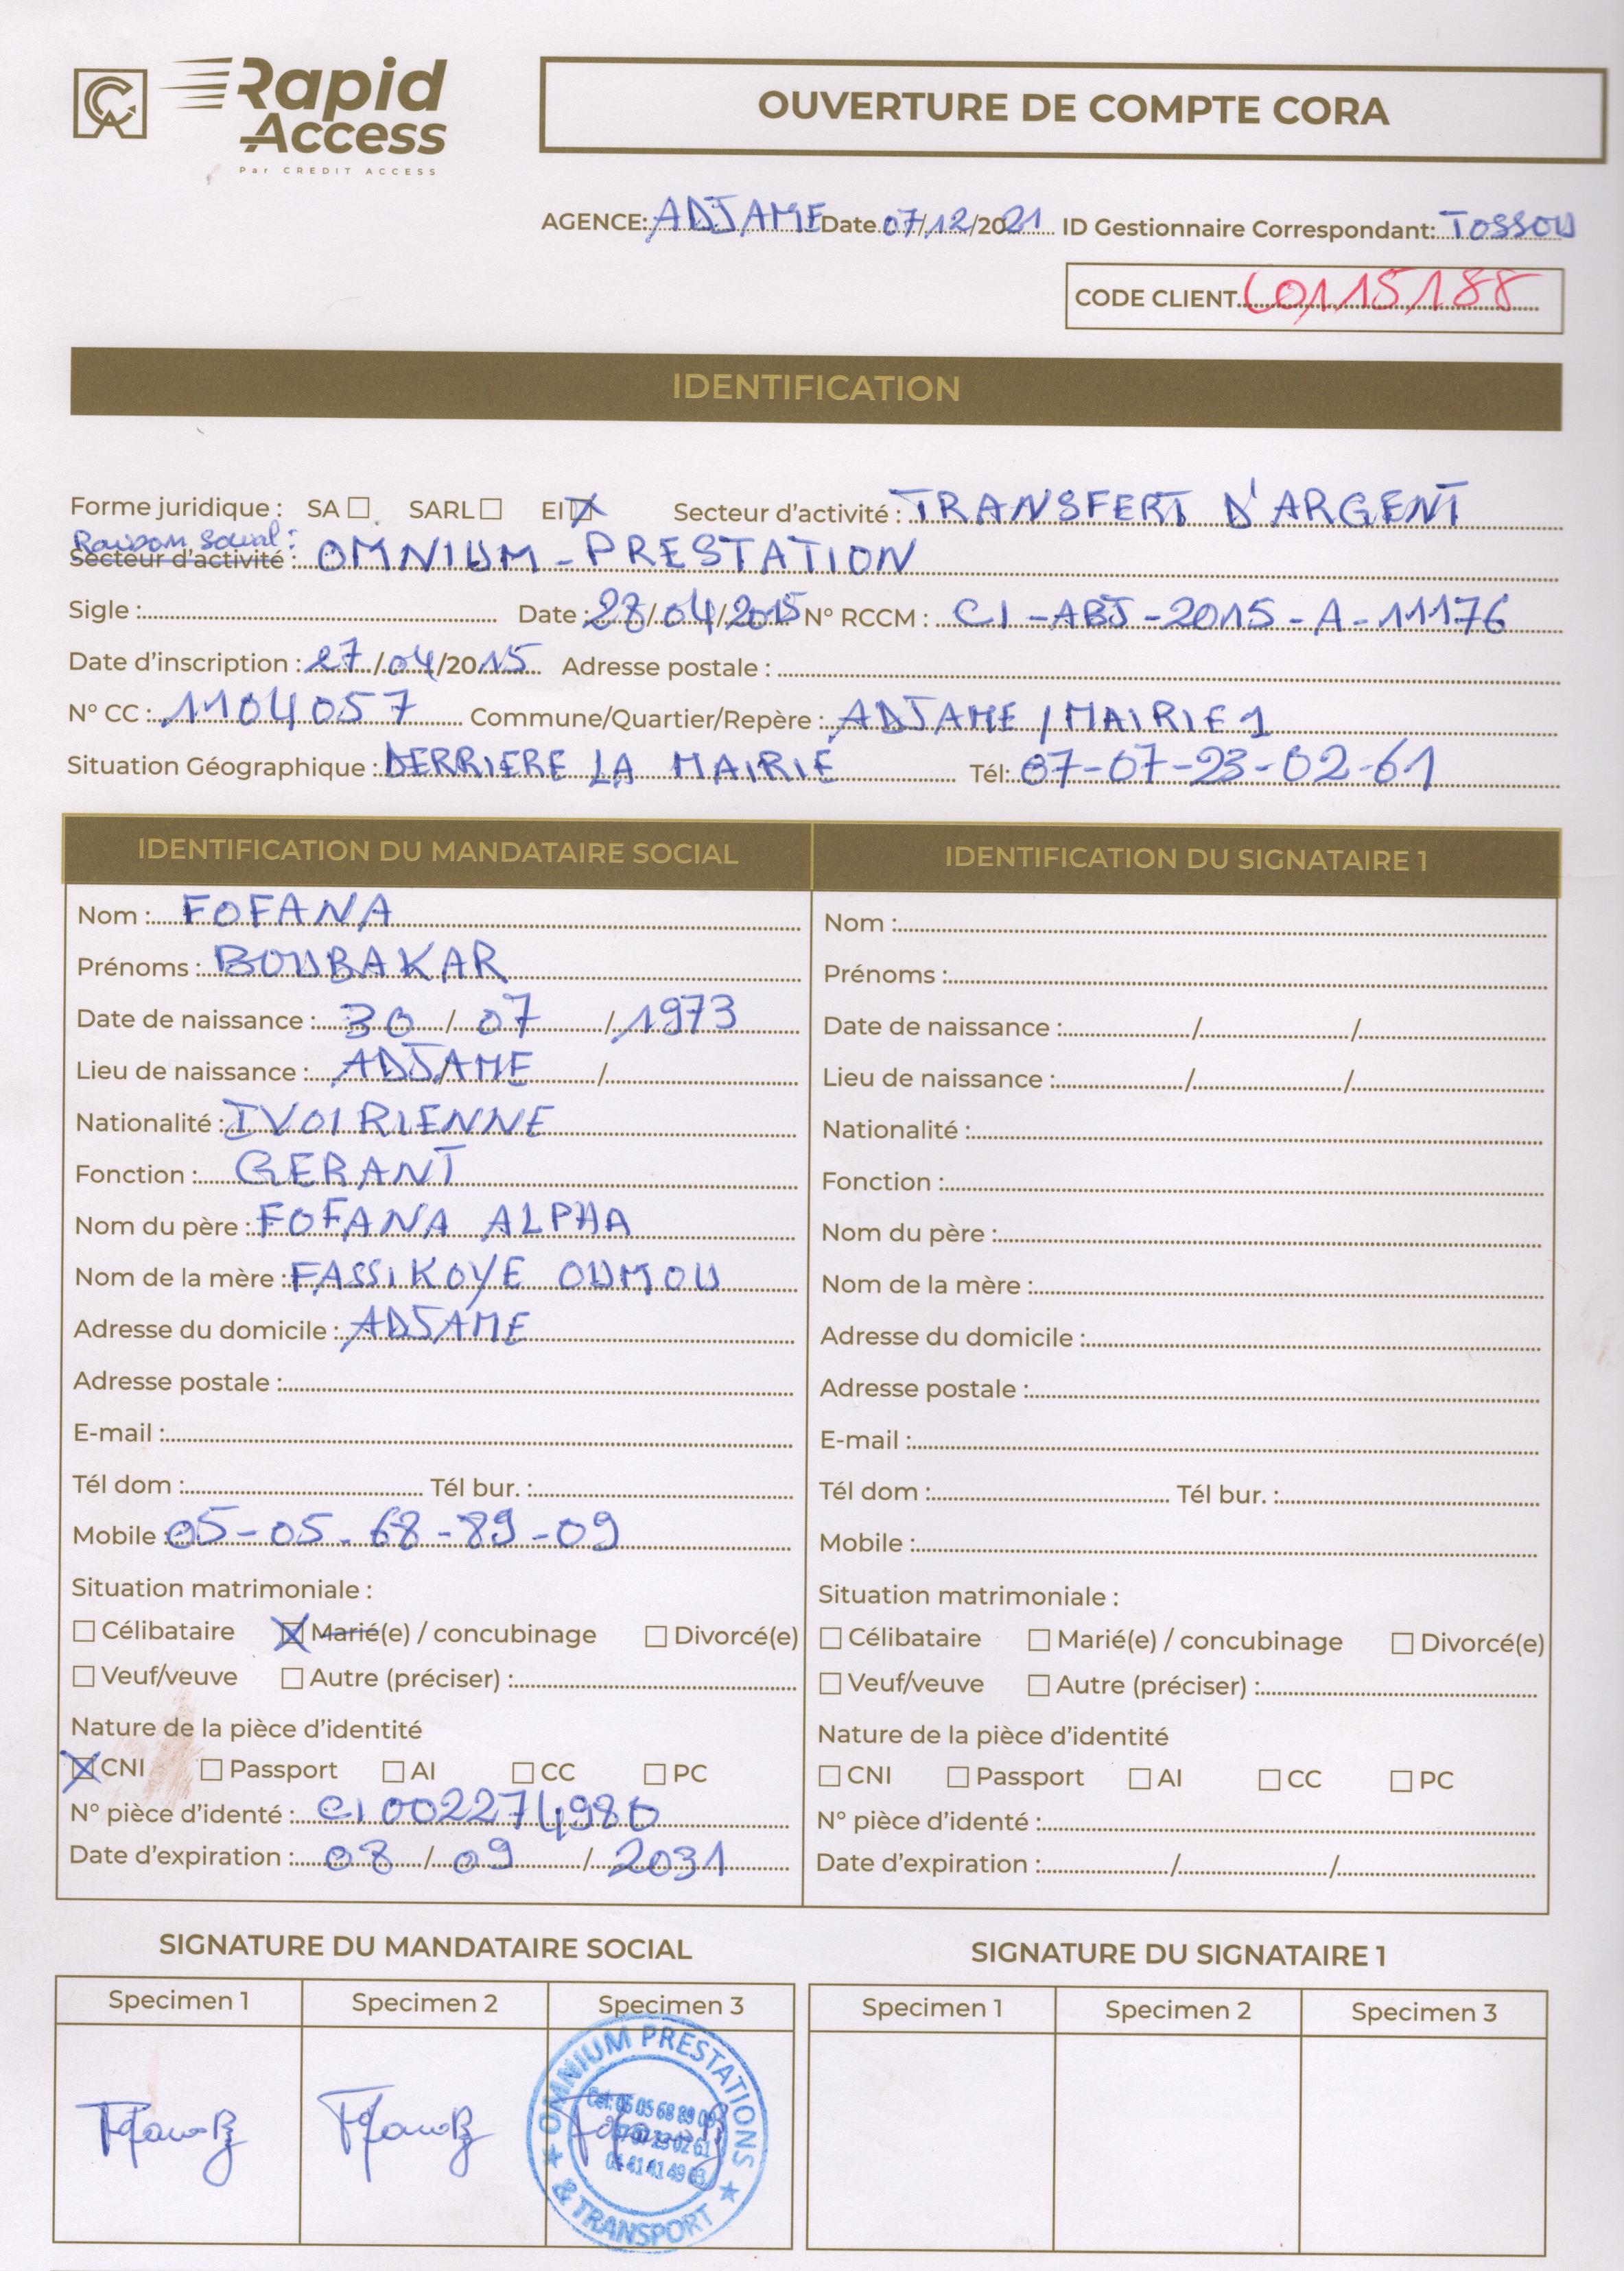 CA Rapid Access
Par CREDIT ACCESS
OUVERTURE DE COMPTE CORA
AGENCE: ADJAME Date 07/12/2021 ID Gestionnaire Correspondant: TOSSOU
CODE CLIENT 60115188
IDENTIFICATION
Forme juridique : SA ☐ SARL ☐ EI ☒ Secteur d'activité : TRANSFERT D'ARGENT
Raison Social :
Secteur d'activité : OMNIUM - PRESTATION
Sigle : Date : 28/04/2015 N° RCCM : CI-ABJ-2015-A-11176
Date d'inscription : 27/04/2015 Adresse postale :
N° CC : 1104057 Commune/Quartier/Repère : ADJAME / MAIRIE 1
Situation Géographique : DERRIERE LA MAIRIE Tél: 07-07-23-02-61
IDENTIFICATION DU MANDATAIRE SOCIAL
Nom : FOFANA
Prénoms : BOUBAKAR
Date de naissance : 30 / 07 / 1973
Lieu de naissance : ADJAME /
Nationalité : IVOIRIENNE
Fonction : GERANT
Nom du père : FOFANA ALPHA
Nom de la mère : FASSIKOYE OUMOU
Adresse du domicile : ADJAME
Adresse postale :
E-mail :
Tél dom : Tél bur. :
Mobile : 05-05-68-89-09
Situation matrimoniale :
☐ Célibataire ☒ Marié(e) / concubinage ☐ Divorcé(e)
☐ Veuf/veuve ☐ Autre (préciser) :
Nature de la pièce d'identité
☒ CNI ☐ Passport ☐ AI ☐ CC ☐ PC
N° pièce d'identé : CI002274980
Date d'expiration : 08 / 09 / 2031
IDENTIFICATION DU SIGNATAIRE 1
Nom :
Prénoms :
Date de naissance : / /
Lieu de naissance : / /
Nationalité :
Fonction :
Nom du père :
Nom de la mère :
Adresse du domicile :
Adresse postale :
E-mail :
Tél dom : Tél bur. :
Mobile :
Situation matrimoniale :
☐ Célibataire ☐ Marié(e) / concubinage ☐ Divorcé(e)
☐ Veuf/veuve ☐ Autre (préciser) :
Nature de la pièce d'identité
☐ CNI ☐ Passport ☐ AI ☐ CC ☐ PC
N° pièce d'identé :
Date d'expiration : / /
SIGNATURE DU MANDATAIRE SOCIAL
Specimen 1 Specimen 2 Specimen 3
OMNIUM PRESTATIONS
& TRANSPORT
SIGNATURE DU SIGNATAIRE 1
Specimen 1 Specimen 2 Specimen 3